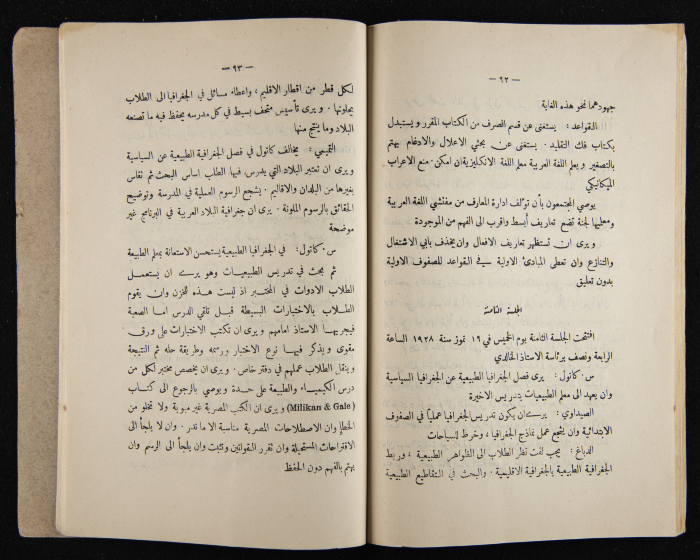 — ٩٢ —
جهودهما نحو هذه الغاية
القواعد : يستغنى عن قسم الصرف من الكتاب المقرر ويستبدل
بكتاب فك التقليد . يستغنى عن بحثي الاعلال والادغام يهتم
بالتصغير ويعلم اللغة العربية معلم اللغة الانكليزية ان امكن . منع الاعراب
الميكانيكي
يوصي المجتمعون بأن تؤلف ادارة المعارف من مفتشي اللغة العربية
ومعلميها لجنة تضع تعاريف أبسط واقرب الى الفهم من الموجودة
ويرى ان تستظهر تعاريف الافعال وان يحذف بابي الاشتغال
والتنازع وان تعطى المبادئ الاولية في القواعد للصفوف الاولية
بدون تعليق
الجلسة الثامنة
افتتحت الجلسة الثامنة يوم الخميس في ١٩ تموز سنة ١٩٢٨ الساعة
الرابعة ونصف برئاسة الاستاذ الخالدي
س . كاتول : يرى فصل الجغرافيا الطبيعية عن الجغرافيا السياسية
وان يعهد الى معلم الطبيعيات بتدريس الاخيرة
الصيداوي : يرى ان يكون تدريس الجغرافيا عمليًا في الصفوف
الابتدائية وان يشجع عمل نماذج الجغرافيا ، وخرط للسياحات
الدباغ : يجب لفت نظر الطلاب الى الظواهر الطبيعية ، وربط
الجغرافية الطبيعية بالجغرافية الاقليمية . والبحث في التقاطيع الطبيعية
— ٩٣ —
لكل قطر من اقطار الاقليم ، واعطاء مسائل في الجغرافيا الى الطلاب
يحلونها . ويرى تأسيس متحف بسيط في كل مدرسه يحفظ فيه ما تصنعه
البلاد وما ينتج منها
القيسي : يخالف كاتول في فصل الجغرافية الطبيعية عن السياسية
ويرى ان تعتبر البلاد التي يدرس فيها الطلب اساس البحث ثم تقاس
بغيرها من البلدان والاقاليم . يشجع الرسوم العملية في المدرسة وتوضيح
الحقائق بالرسوم الملونة . يرى ان جغرافية البلاد العربية في البرنامج غير
موضحة
س . كاتول : في الجغرافيا الطبيعية يستحسن الاستعانة بمعلم الطبيعة
ثم بحث في تدريس الطبيعيات وهو يرى ان يستعمل
الطلاب الادوات في المختبر اذ ليست هذه للخزن وان يقوم
الطلاب بالاختبارات البسيطة قبل تلقي الدرس اما الصعبة
فيجريها الاستاذ امامهم ويرى ان تكتب الاختبارات على ورق
مقوى ويذكر فيها نوع الاختبار ورسمه وطريقة حله ثم النتيجة
وينقل الطلاب عملهم في دفتر خاص . ويرى ان يخصص مختبر لكل من
درس الكيمياء والطبيعة على حدة ويوصي بالرجوع الى كتاب
(Milikan & Gale) ويرى ان الكتب المصرية غير مبوبة ولا تخلو من
الخطإ وان الاصطلاحات المصرية مناسبة الا ما ندر . وان لا يلجأ الى
الاقتراحات المستحيلة وان تقرر القوانين وتثبت وان يلجأ الى الرسم وان
يهتم بالفهم دون الحفظ